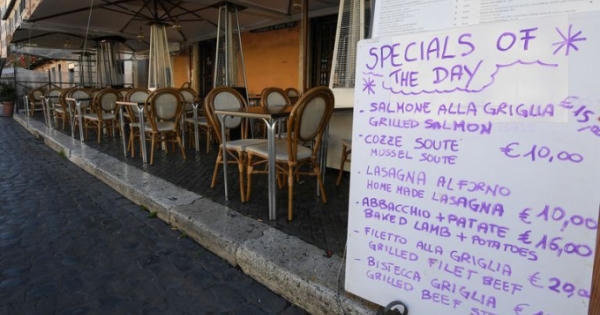 SPECIALS OF
THE DAY
SALMONE ALLA GRIGLIA €15,
GRILLED SALMON
COZZE SOUTE' €10,00
MUSSEL SOUTE
LASAGNA AL FORNO
HOME MADE LASAGNA €10,00
ABBACCHIO + PATATE
BAKED LAMB + POTATOES €16,00
FILETTO ALLA GRIGLIA
GRILLED FILET BEEF €20,0
BISTECCA GRIGLIA
GRILLED BEEF ST